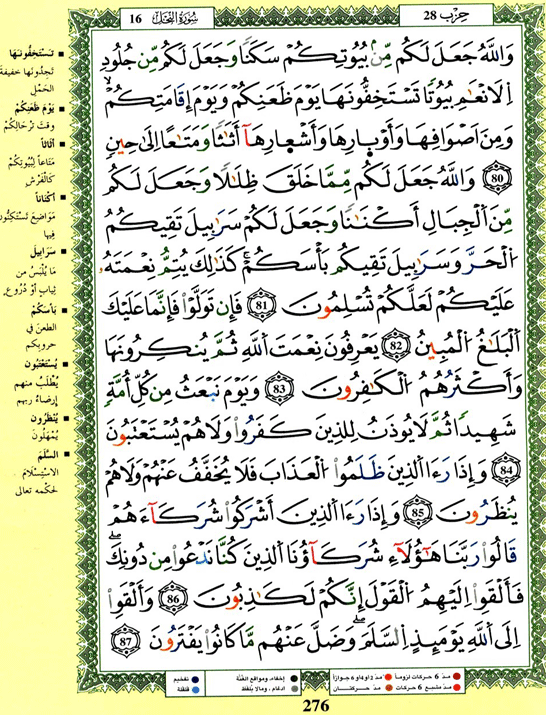 حِزْب 28
سُورَةُ النَّحْل 16
وَاللَّهُ جَعَلَ لَكُم مِّنۢ بُيُوتِكُمْ سَكَنًا وَجَعَلَ لَكُم مِّن جُلُودِ
اِلَانْعَٰمِ بُيُوتًا تَسْتَخِفُّونَهَا يَوْمَ ظَعَنِكُمْ وَيَوْمَ إِقَامَتِكُمْ
وَمِنَ اَصْوَافِهَا وَأَوْبَارِهَا وَأَشْعَارِهَآ أَثَٰثًا وَمَتَٰعًا اِلَىٰ حِينٍ
80 وَاللَّهُ جَعَلَ لَكُم مِّمَّا خَلَقَ ظِلَٰلًا وَجَعَلَ لَكُم
مِّنَ اَلْجِبَالِ أَكْنَٰنًا وَجَعَلَ لَكُمْ سَرَٰبِيلَ تَقِيكُمُ
اُلْحَرَّ وَسَرَٰبِيلَ تَقِيكُم بَأْسَكُمْ كَذَٰلِكَ يُتِمُّ نِعْمَتَهُۥ
عَلَيْكُمْ لَعَلَّكُمْ تُسْلِمُونَ 81 فَإِن تَوَلَّوْا فَإِنَّمَا عَلَيْكَ
اَلْبَلَٰغُ اُلْمُبِينُ 82 يَعْرِفُونَ نِعْمَتَ اَللَّهِ ثُمَّ يُنكِرُونَهَا
وَأَكْثَرُهُمُ اُلْكَٰفِرُونَ 83 وَيَوْمَ نَبْعَثُ مِن كُلِّ أُمَّةٍ
شَهِيدًا ثُمَّ لَا يُوذَنُ لِلَّذِينَ كَفَرُوا وَلَا هُمْ يُسْتَعْتَبُونَ
84 وَإِذَا رَءَا اَلَّذِينَ ظَلَمُوا اُلْعَذَابَ فَلَا يُخَفَّفُ عَنْهُمْ وَلَا هُمْ
يُنظَرُونَ 85 وَإِذَا رَءَا اَلَّذِينَ أَشْرَكُوا شُرَكَآءَهُمْ
قَالُوا رَبَّنَا هَٰٓؤُلَآءِ شُرَكَآؤُنَا اَلَّذِينَ كُنَّا نَدْعُوا مِن دُونِكَ
فَأَلْقَوِا اِلَيْهِمُ اُلْقَوْلَ إِنَّكُمْ لَكَٰذِبُونَ 86 وَأَلْقَوِا
اِلَى اَللَّهِ يَوْمَئِذٍ اِلسَّلَمَ وَضَلَّ عَنْهُم مَّا كَانُوا يَفْتَرُونَ 87
■ تَسْتَخِفُّونَهَا
تَجِدُونَها خفيفةَ
الحَمْل
■ يَوْمَ ظَعَنِكُمْ
وقتَ تَرْحَالِكُمْ
■ أثاثاً
مَتَاعاً لِبُيُوتِكُمْ
كالفُرُش
■ أَكْنَاناً
مَوَاضِعَ تَسْتَكِنُّونَ
فِيها
■ سَرَابِيلَ
مَا يُلْبَسُ من
ثِيابٍ أوْ دُرُوعٍ
■ بَأسَكُمْ
الطعنَ في
حروبكم
■ يُسْتَعْتَبُون
يُطْلَبُ منهم
إرضاءُ ربهم
■ يُنْظَرُون
يُمْهَلُونَ
■ السَّلَمَ
الاسْتِسْلامَ
لحكمه تعالى
مدّ 6 حركات لزوماً مدّ 2 أو 4 أو 6 جوازاً
مدّ مشبع 6 حركات مدّ حركتان
إخفاء، ومواقع الغُنَّة
ادغام، وما لا يُلفظ
تفخيم
قلقلة
276